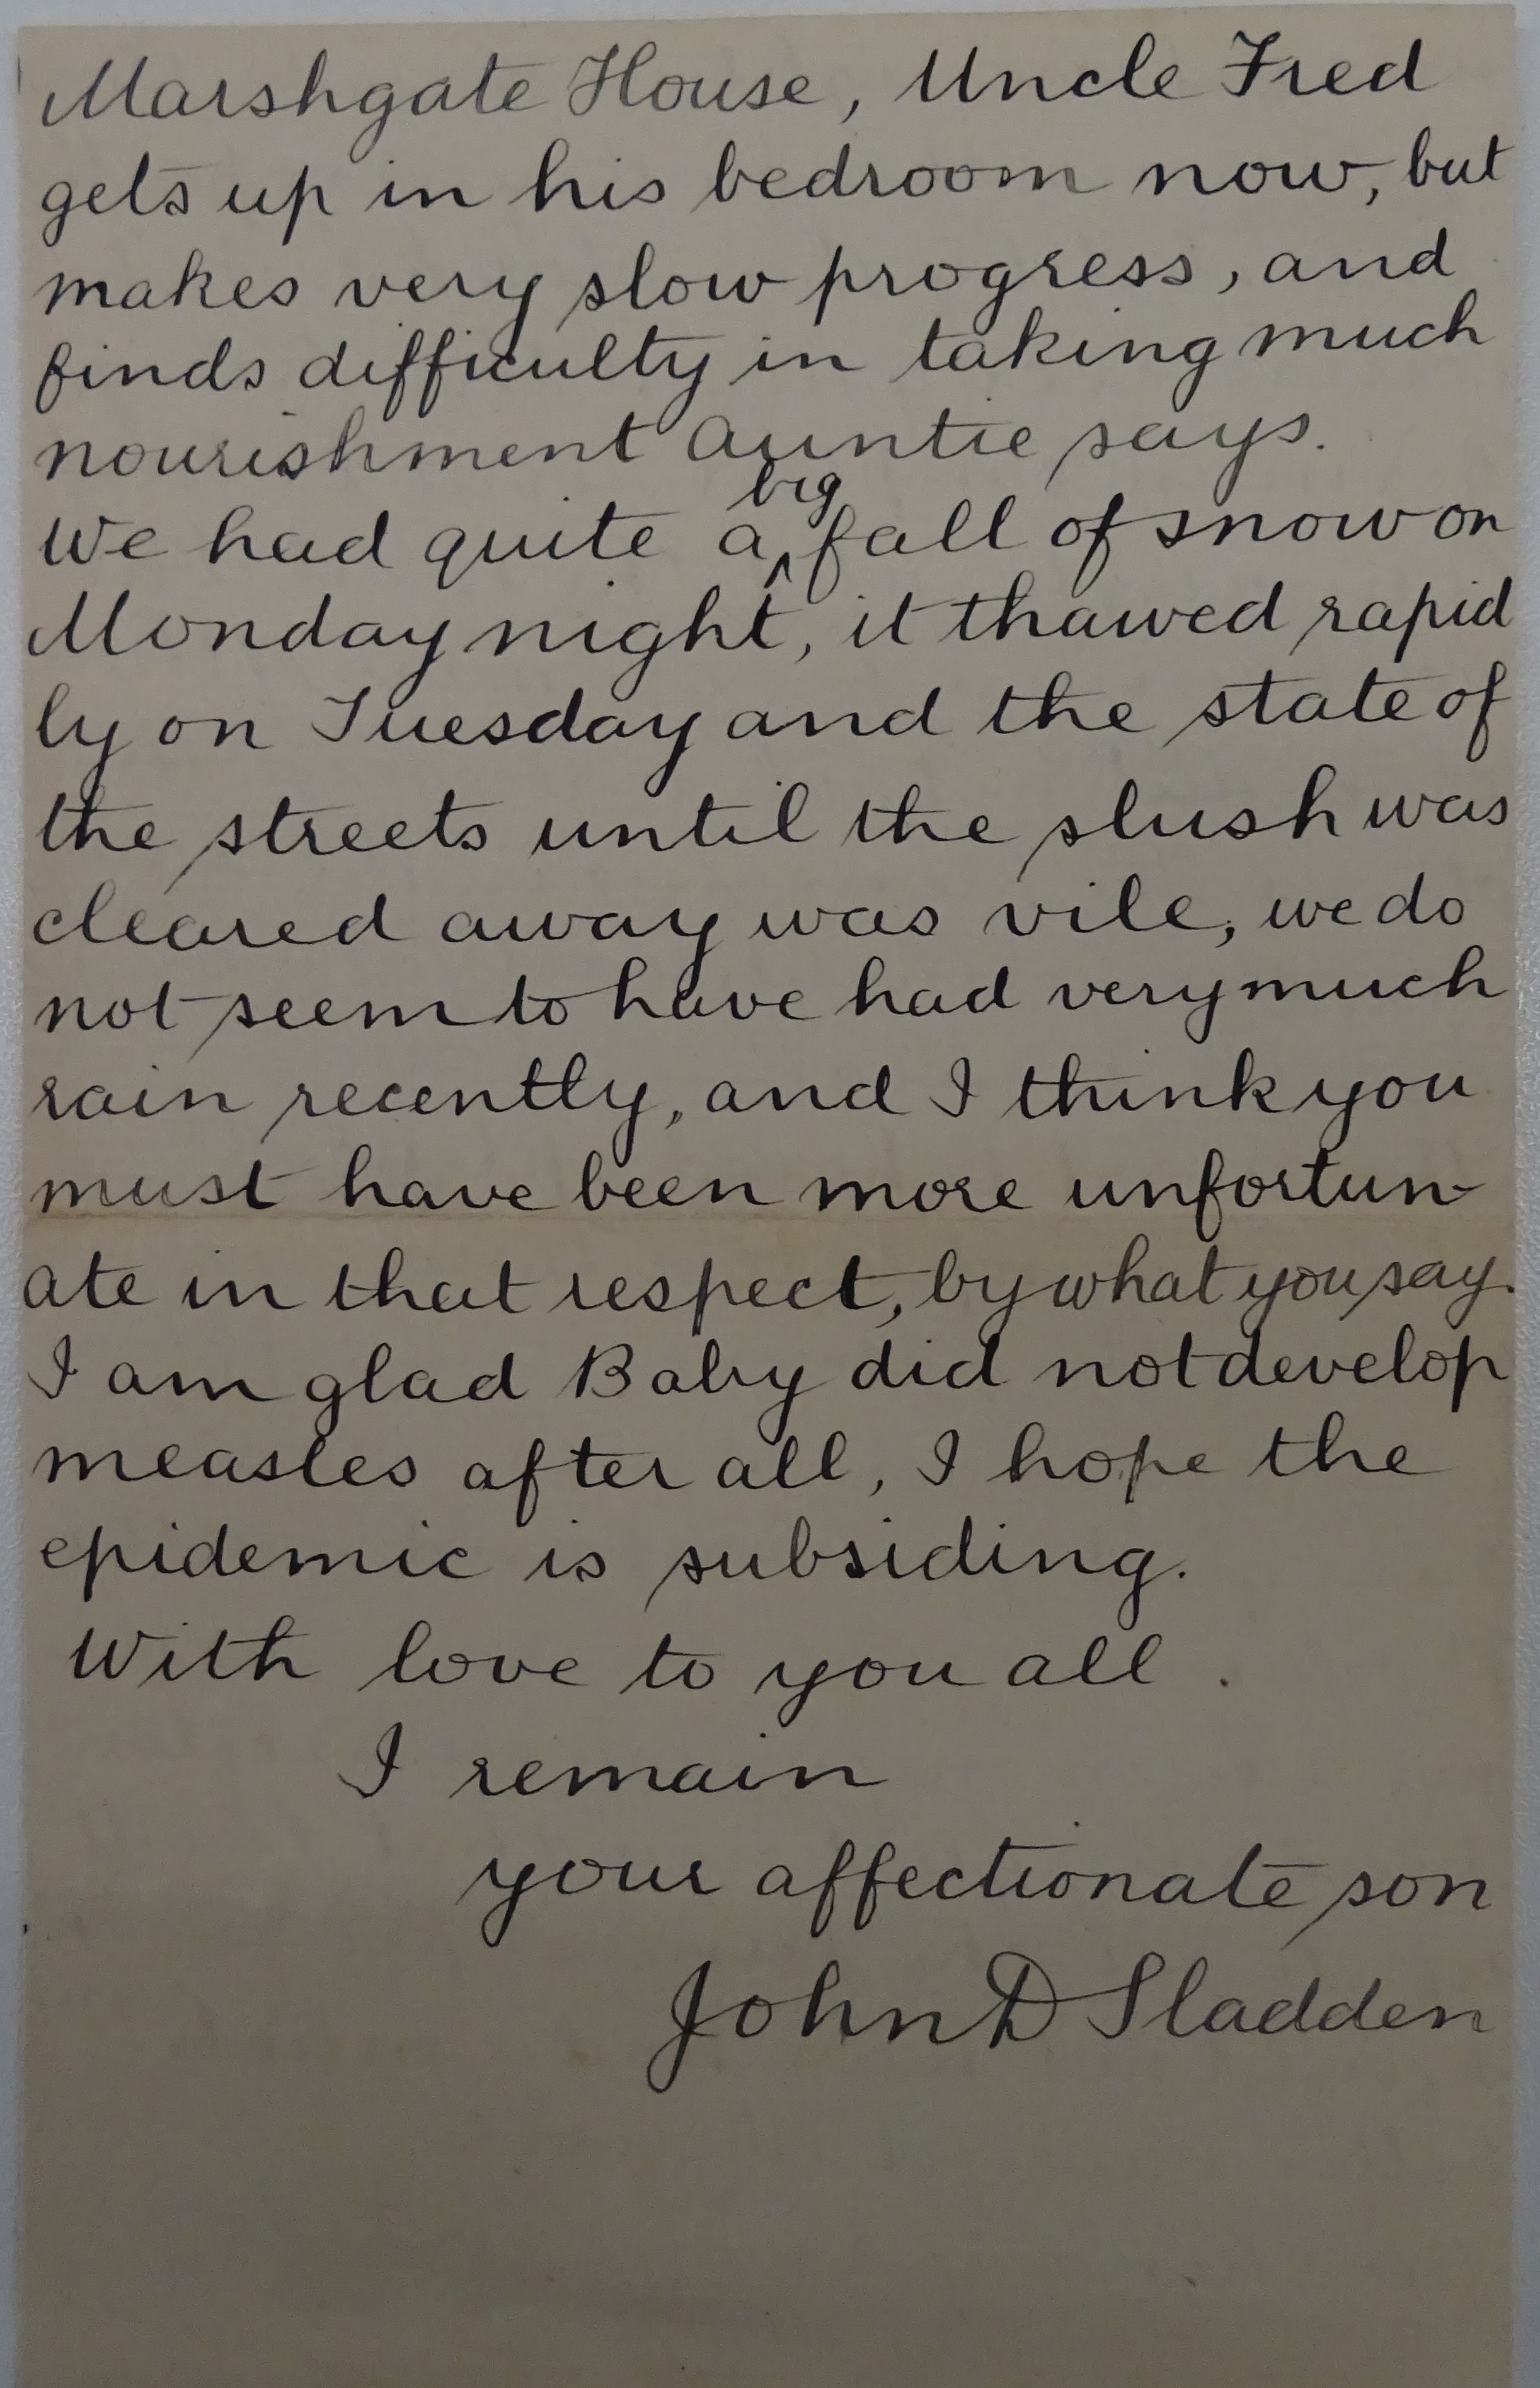 Marshgate House, Uncle Fred
gets up in his bedroom now, but
makes very slow progress, and
finds difficulty in taking much
nourishment Auntie says.
big
We had quite a fall of snow on
Monday night, it thawed rapid
ly on Tuesday and the state of
the streets until the slush was
cleared away was vile, we do
not seem to have had very much
rain recently, and I think you
must have been more unfortun-
ate in that respect, by what you say.
I am glad Baby did not develop
measles after all, I hope the
epidemic is subsiding.
With love to you all.
I remain
your affectionate son
John D Sladden